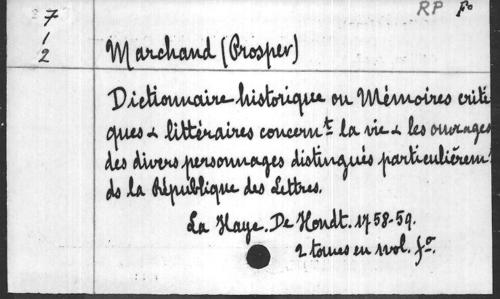 RP Fo
7
1
2
Marchand (Prosper)
Dictionnaire historique ou Mémoires criti
ques & littéraires concernt la vie & les ouvrages
des divers personnages distingués particulièremt
ds la République des Lettres.
La Haye. De Hondt. 1758-59.
2 tomes en 1 vol. fo.